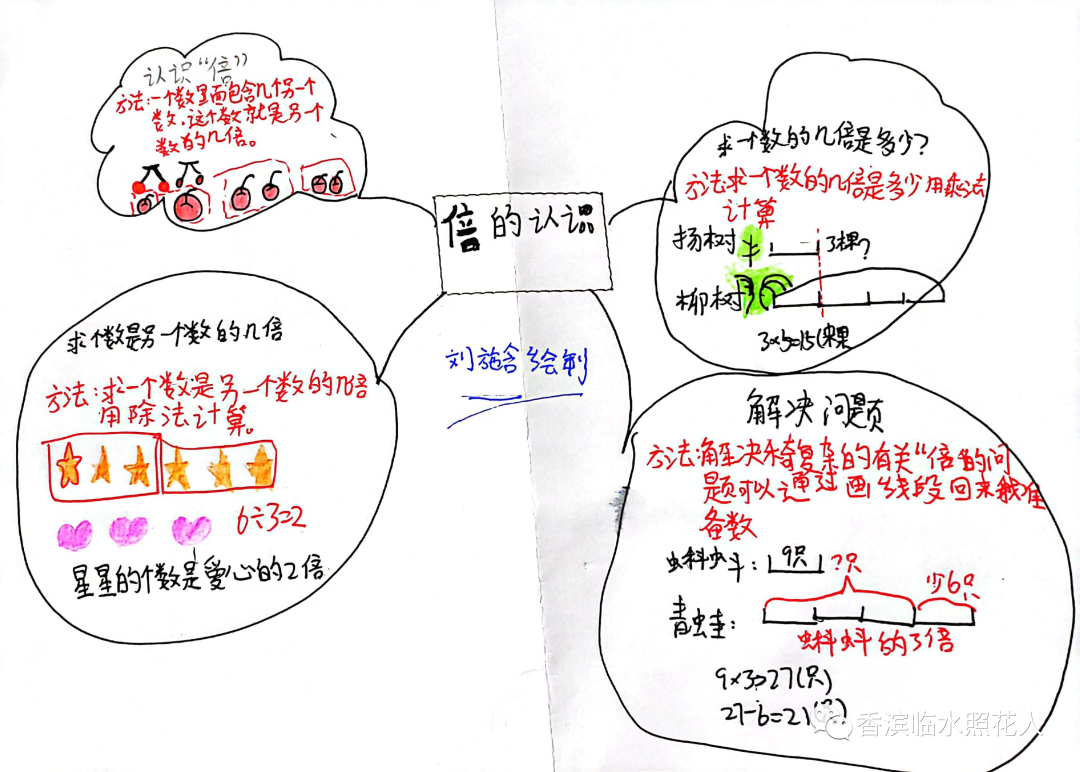 倍的认识
刘施含绘制
认识“倍”
方法:一个数里面包含几个另一个
数,这个数就是另一个
数的几倍。
求一个数的几倍是多少?
方法求一个数的几倍是多少用乘法
计算
杨树
3棵?
柳树
3×5=15(棵
求个数是另一个数的几倍
方法:求一个数是另一个数的几倍
用除法计算。
6÷3=2
星星的个数是爱心的2倍
解决问题
方法:解决稍复杂的有关“倍”的问
题可以通过画线段回来找准
备数
蝌蚪: 9只 ?只
少6只
青蛙:
蝌蚪的3倍
9×3=27(只)
27-6=21(只)
香滨临水照花人